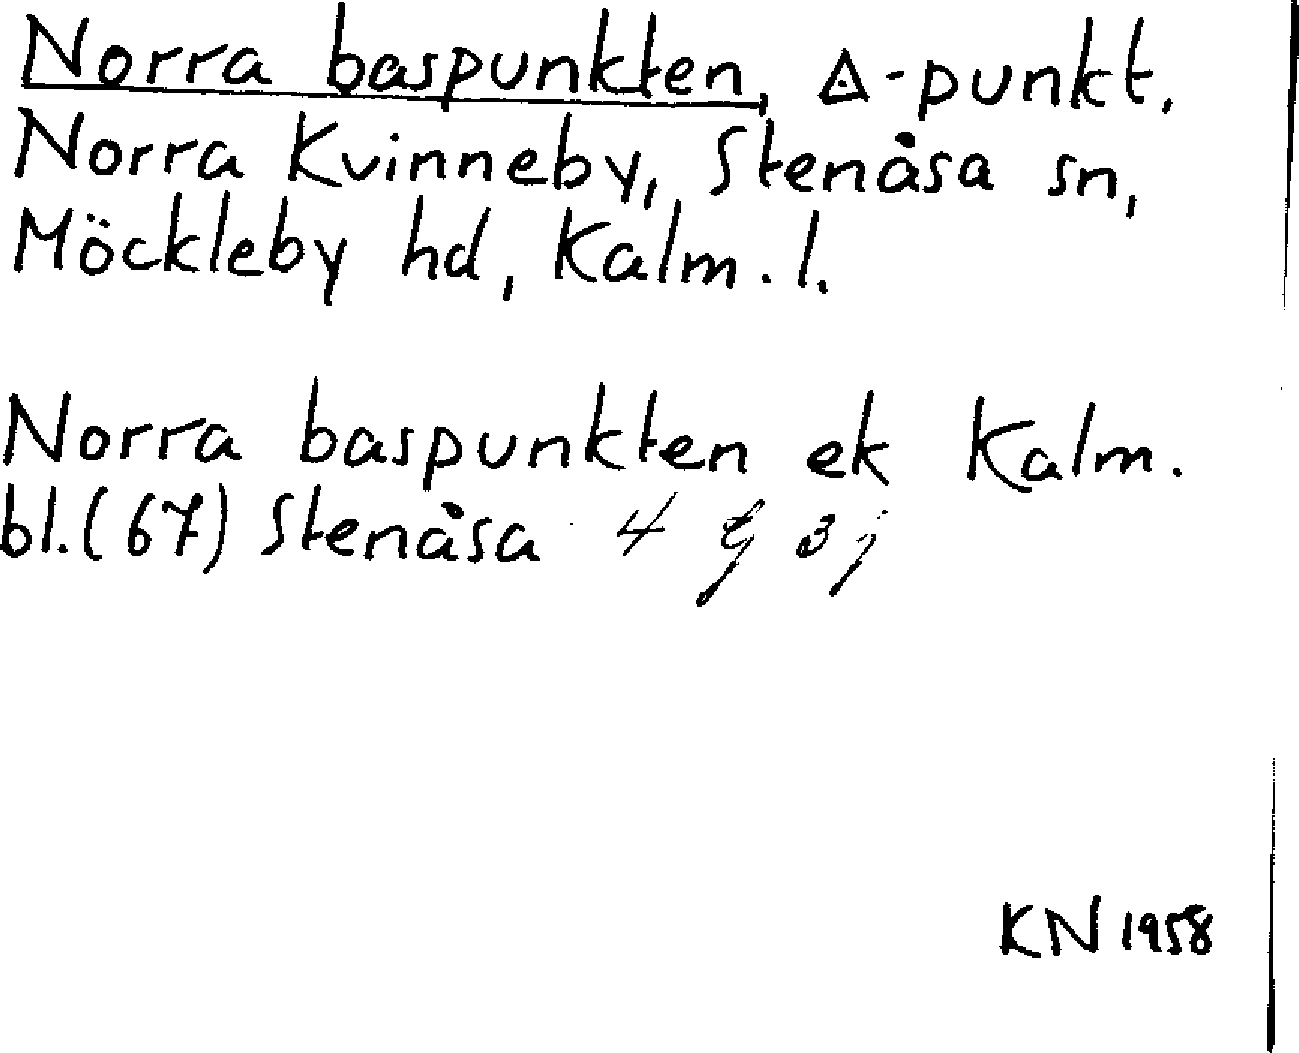 Norra baspunkten, △-punkt.
Norra Kvinneby, Stenåsa sn,
Möckleby hd, Kalm. l.
Norra baspunkten ek Kalm.
bl. (67) Stenåsa 4 g 3 j
KN 1958